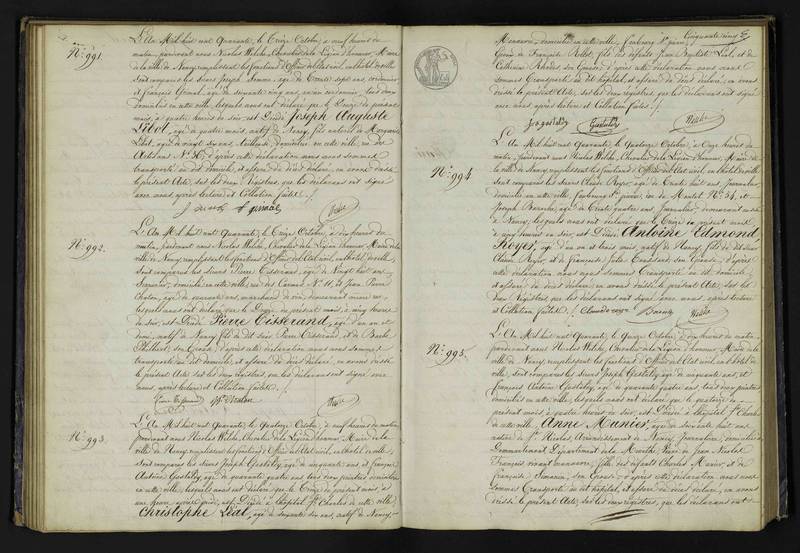 N.° 991.
L'An Mil huit cent Quarante, le Treize Octobre, à neuf heures du
matin, pardevant nous Nicolas Welche, Chevalier de la Légion d'honneur, Maire
de la ville de Nancy, remplissant les fonctions d'Officier de l'Etat civil, en l'hôtel de ville
sont comparus les sieurs Joseph Simon, agé de Trente sept ans, cordonnier
et François agé de soixante cinq ans, ancien cordonnier, tous deux
domiciliés en cette ville, lesquels nous ont déclaré que le Douze du présent
mois, à quatre heures du soir, est Décédé Joseph Auguste
Libot, agé de quatre mois, natif de Nancy, fils naturel de Marguerite
Libot, agée de vingt six ans, domiciliée en cette ville, rue des
Artisans N.° 36, d'après cette déclaration nous nous sommes
transporté au dit domicile, et assuré du décès déclaré, en avons dressé
le présent Acte, sur les deux Registres, que les déclarans ont signé
avec nous, après lecture et Collation faite. /.
N.° 992.
L'An Mil huit cent Quarante, le Treize Octobre, à dix heures du
matin, pardevant nous Nicolas Welche, Chevalier de la Légion d'honneur, Maire de la
ville de Nancy, remplissant les fonctions d'Officier de l'Etat civil, en l'hôtel de ville
sont comparus les sieurs Pierre Tisserand, agé de Vingt huit ans,
Serrurier, domicilié en cette ville, rue des Carmes N.° 11, et Jean Pierre
agé de quarante ans, marchand de vin, demeurant même rue,
lesquels nous ont déclaré que le Douze du présent mois, à cinq heures
du soir, est Décédé Pierre Tisserand, agé d'un an et
demi, natif de Nancy, fils du dit sieur Pierre Tisserand, et de Barbe
son Epouse, d'après cette déclaration nous nous sommes
transporté au dit domicile, et assuré du décès déclaré, en avons dressé
le présent Acte, sur les deux registres, que les déclarans ont signé avec
nous, après lecture et Collation faite. /.
N.° 993.
L'An Mil huit cent Quarante, le Quatorze Octobre, à neuf heures du matin
pardevant nous Nicolas Welche, Chevalier de la Légion d'honneur, Maire de la
ville de Nancy, remplissant les fonctions d'Officier de l'Etat civil, en l'hôtel de ville
sont comparus les sieurs Joseph Gestalty, agé de cinquante ans, et François
Antoine Gestalty, agé de quarante ans, tous deux peintres, domiciliés
en cette ville, lesquels nous ont déclaré que le Treize du présent mois, à
une heure après midi, est Décédé à l'hôpital S.t Charles de cette ville,
Christophe Léal, agé de soixante six ans, natif de Nancy,
Manœuvre, domicilié en cette ville, faubourg S.t Pierre,
de Françoise fils des défunts Jean Baptiste Léal, et de
Catherine son Epouse, d'après cette déclaration nous nous
sommes Transporté au dit hôpital, et assuré du décès déclaré, en avons
dressé le présent Acte, sur les deux registres, que les déclarans ont signé
avec nous, après lecture et Collation faite. /.
N.° 994.
L'An Mil huit cent Quarante, le Quatorze Octobre, à onze heures du
matin, pardevant nous Nicolas Welche, Chevalier de la Légion d'honneur, Maire de
la ville de Nancy, remplissant les fonctions d'Officier de l'Etat civil, en l'hôtel de ville
sont comparus les sieurs Claude Royer, agé de Trente huit ans, Journalier,
domicilié en cette ville, faubourg S.t Pierre, rue du Montet N.° 34, et
Joseph agé de Trente quatre ans, Journalier, demeurant aussi
à Nancy, lesquels nous ont déclaré que le Treize du présent mois
à cinq heures du soir, est Décédé Antoine Edmond
Royer, agé d'un an et trois mois, natif de Nancy, fils du dit sieur
Claude Royer, et de Françoise Julie son Epouse, d'après
cette déclaration nous nous sommes Transporté au dit domicile,
et assuré du décès déclaré, en avons dressé le présent Acte, sur les
deux Registres que les déclarans ont signé avec nous, après lecture
et Collation faite. /.
N.° 995.
L'An Mil huit cent Quarante, le Quinze Octobre, à dix heures du matin,
pardevant nous Nicolas Welche, Chevalier de la Légion d'honneur, Maire de la
ville de Nancy, remplissant les fonctions d'Officier de l'Etat civil, en l'hôtel de
ville, sont comparus les sieurs Joseph Gestalty, agé de cinquante ans, et
François Antoine Gestalty, agé de quarante ans, tous deux peintres
domiciliés en cette ville, lesquels nous ont déclaré que le quatorze du
présent mois, à quatre heures du soir, est Décédée à l'hôpital S.t Charles
de cette ville, Anne Munier, agée de soixante huit ans,
native de S.t Nicolas, Arrondissement de Nancy, Journalière, domiciliée à
Département de la Meurthe, Veuve de Jean Nicolas
François, vivant manœuvre, fille des défunts Charles Munier, et de
Françoise son Epouse, d'après cette déclaration nous nous
sommes Transporté au dit hôpital, et assuré du décès déclaré, en avons
dressé le présent Acte, sur les deux registres, que les déclarans ont